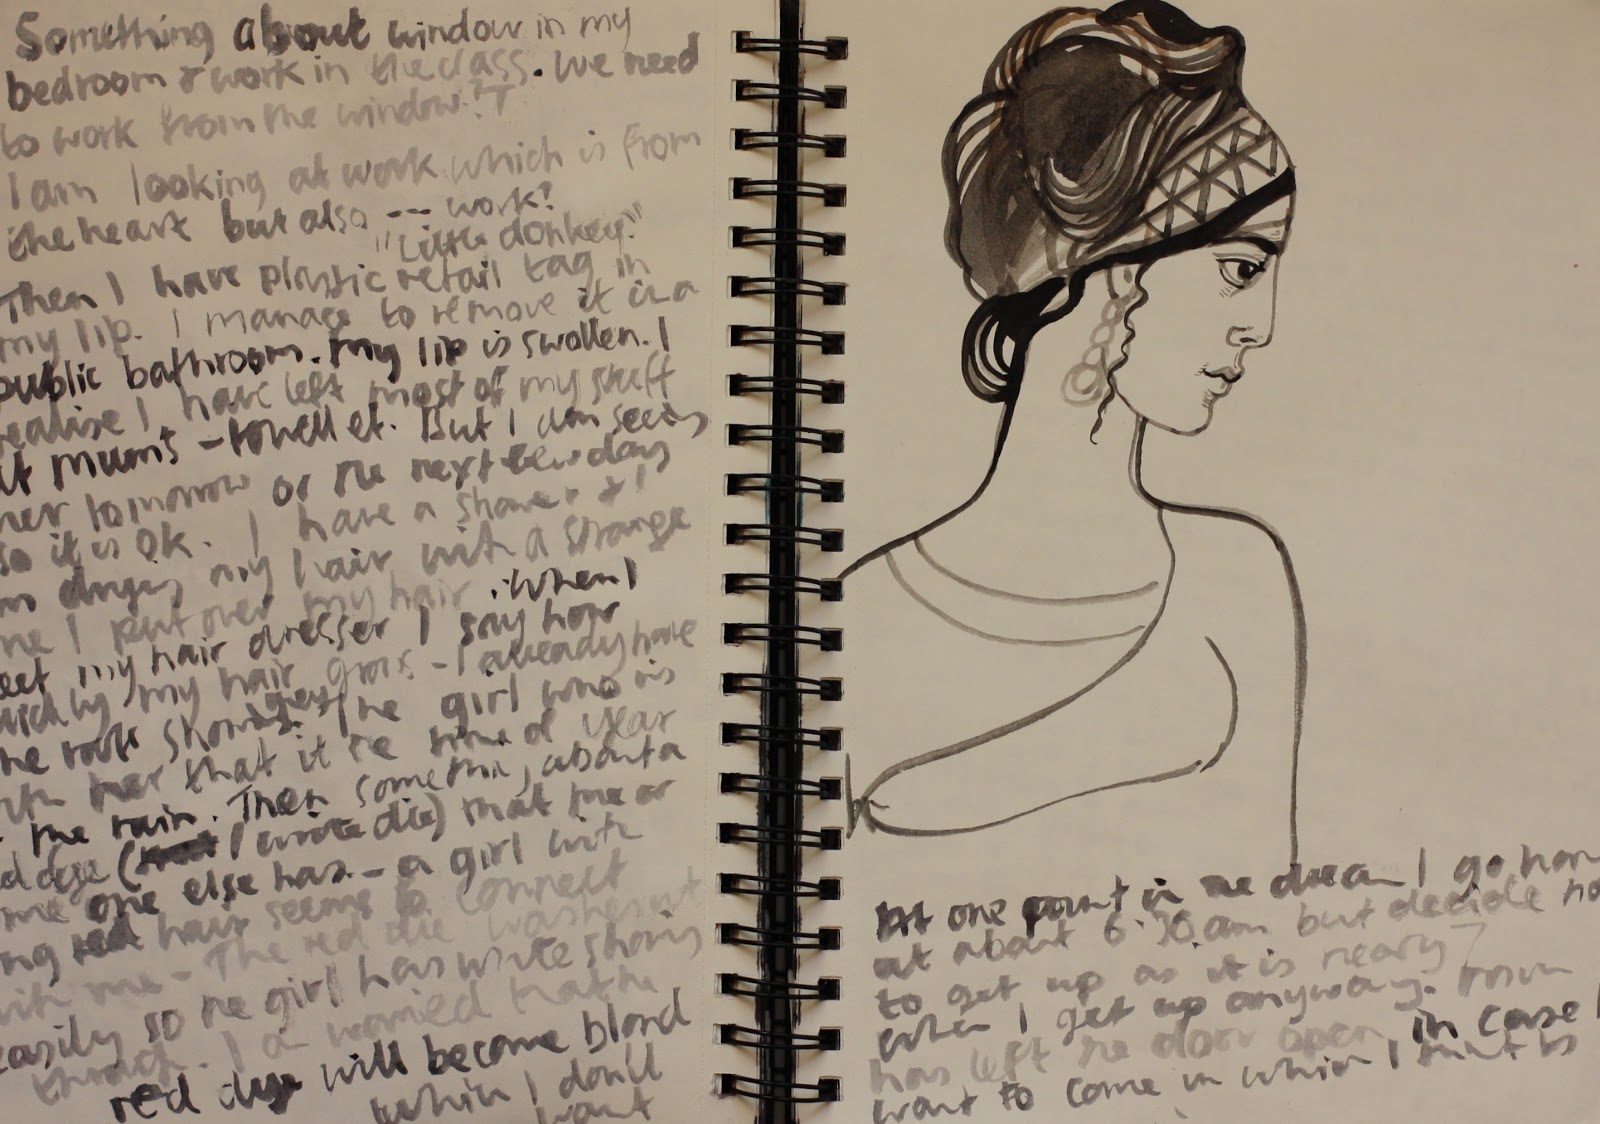 Something about window in my
bedroom & work in the class. We need
to work from the window?
I am looking at work which is from
the heart but also --- work?
"Little donkey."
Then I have plastic retail tag in
my lip. I manage to remove it in a
public bathroom. My lip is swollen. I
realise I have left most of my stuff
at mums - towell et. But I am seeing
her tomorrow or the next few days
so it is ok. I have a shower & I
drying my hair with a strange
I put over my hair. When I
my hair dresser I say how
my hair grows - I already have
showing. The girl who is
her that it is the time of year
the rain. Then something about a
dye (I wrote die) that me or
one else has - a girl with
red hair seems to connect
with me - The red die washes out
easily so the girl has white showing
through. I am worried that the
red dye will become blond
when I don't
want
At one point in the dream I go home
at about 6.30 am but decide not
to get up as it is nearly 7
when I get up anyway. Mum
has left the door open in case I
want to come in which I think is